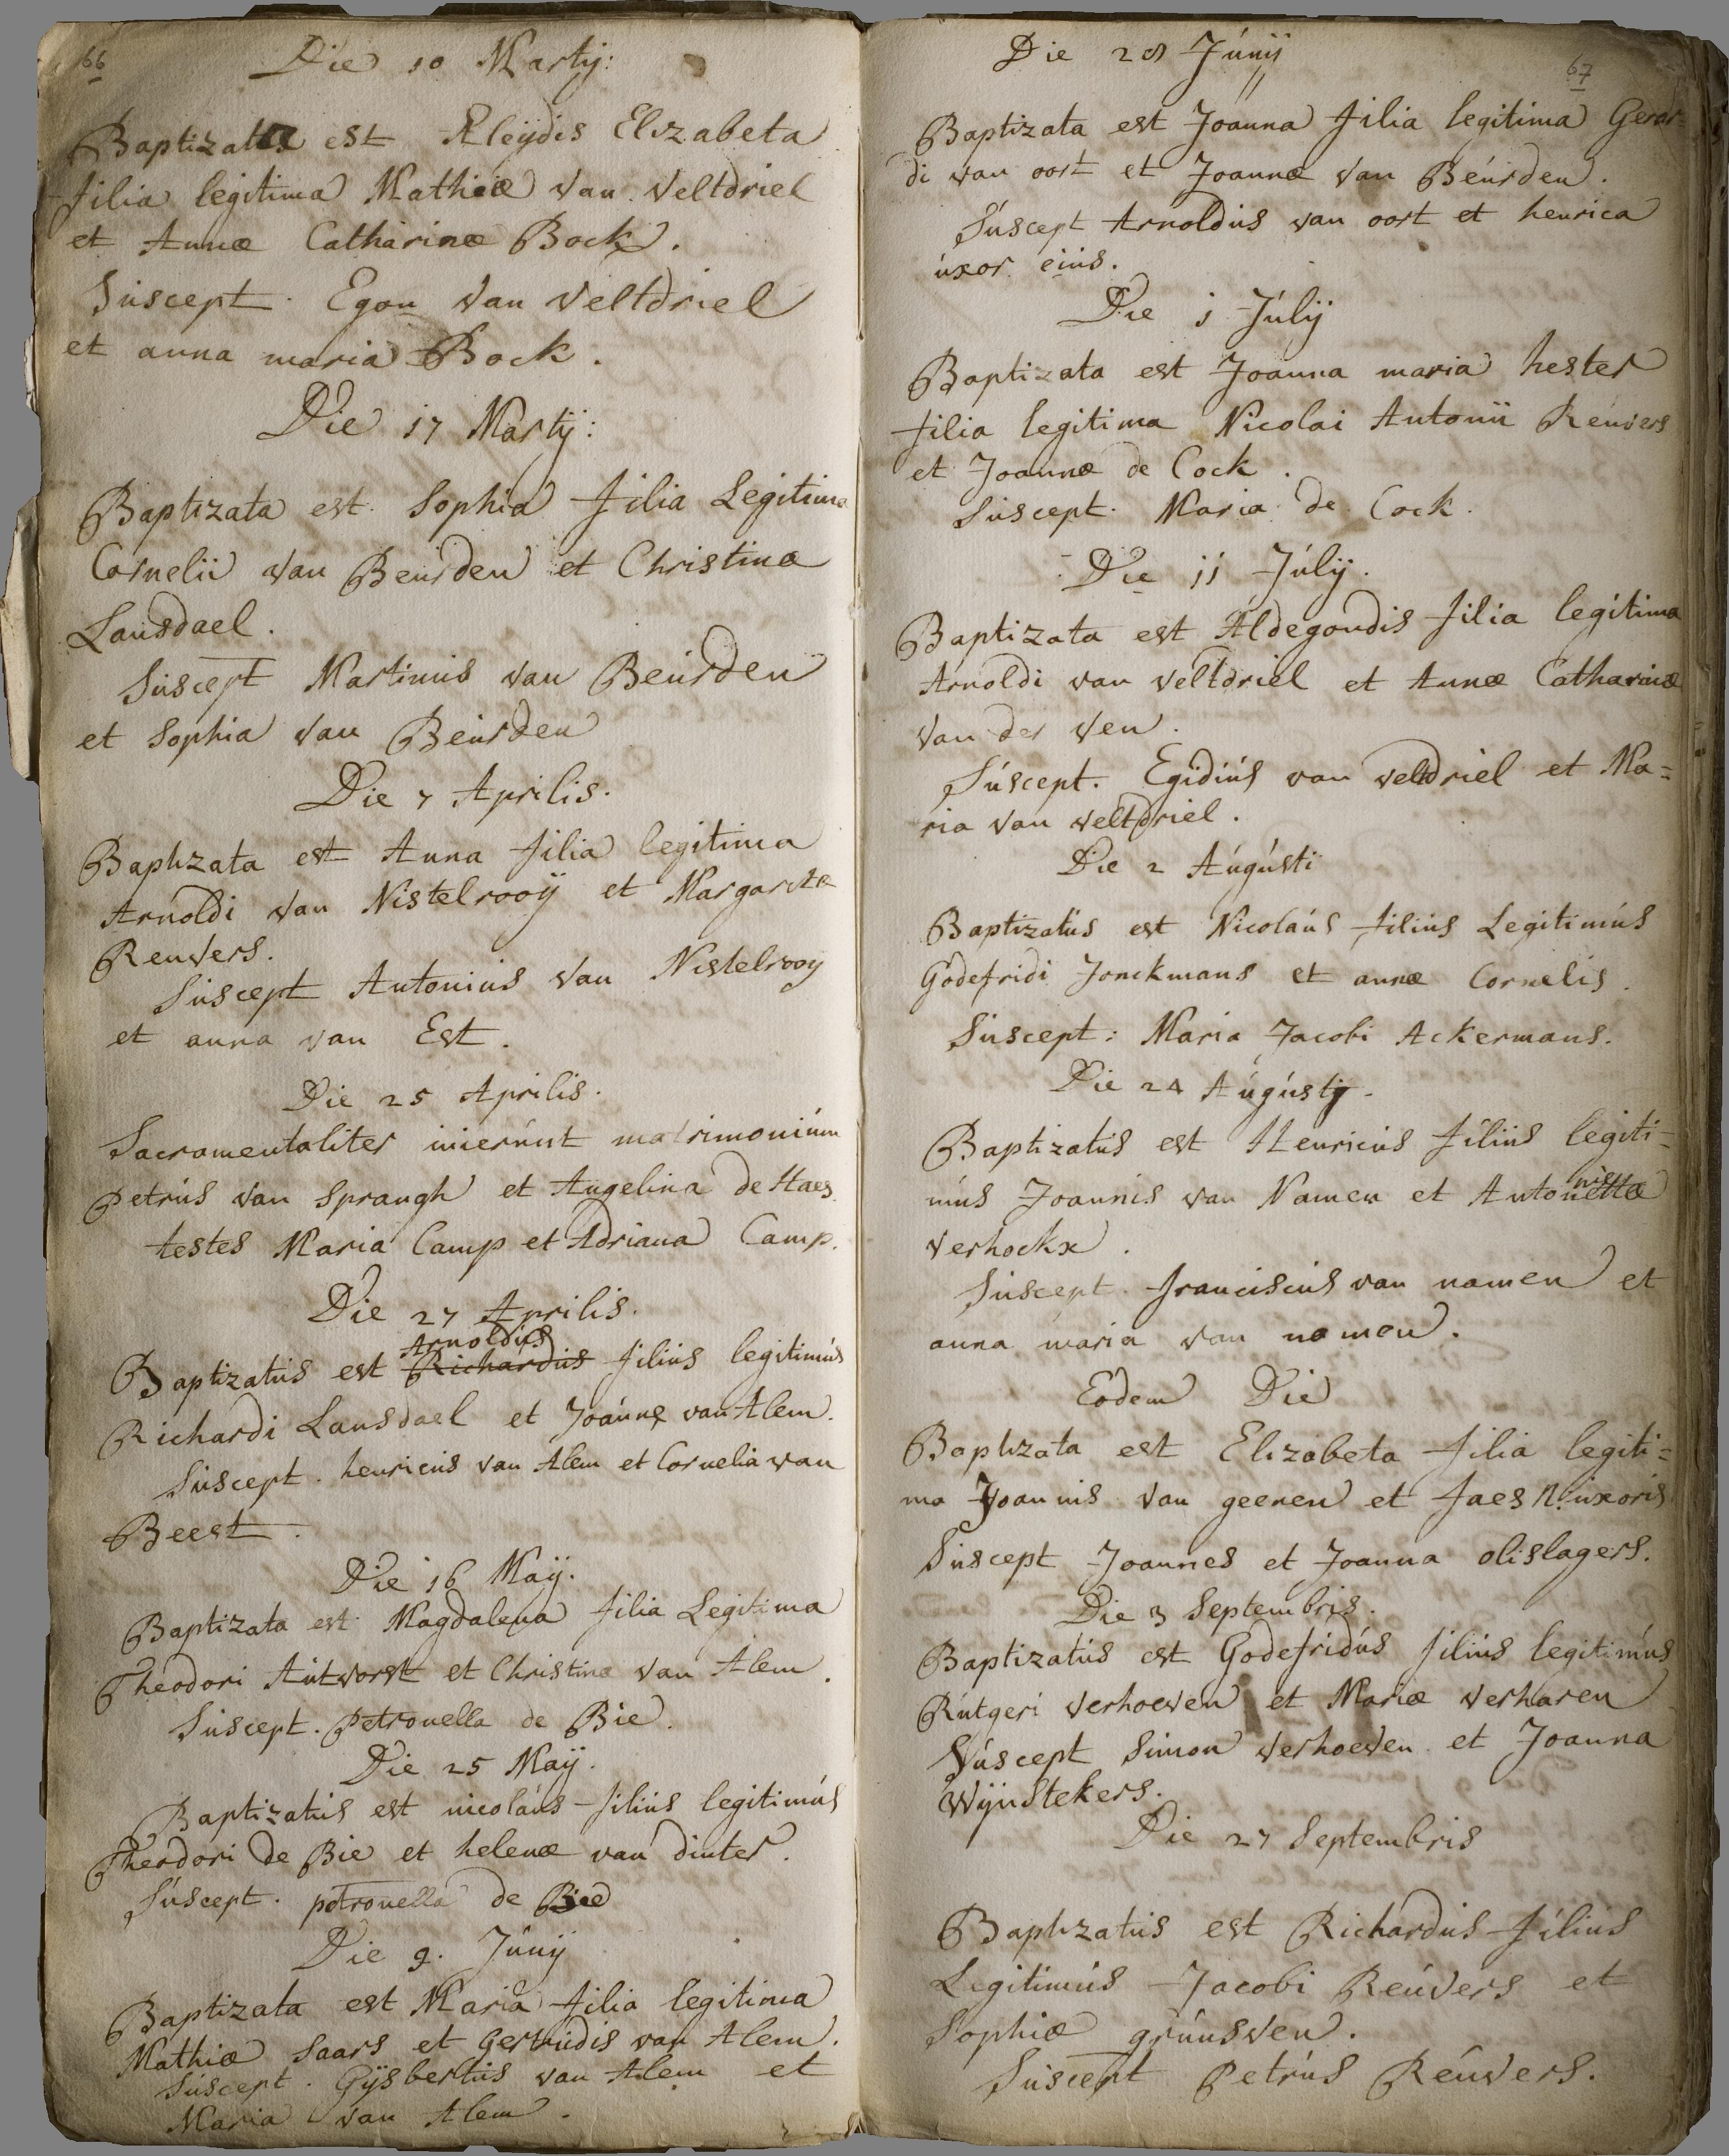 66
Die 10 Martij:
Baptizata est Aleijdis Elizabeta
filia legitima Mathiæ van Veltdriel
et Annæ Catharinæ Bock.
Suscept. Egon van Veltdriel
et anna maria Bock.
Die 17 Martij:
Baptizata est Sophia filia Legitima
Cornelii van Beurden et Christinæ
Lansdael.
Suscept Martinus van Beurden
et Sophia van Beurden
Die 7 Aprilis.
Baptizata est Anna filia legitima
Arnoldi van Nistelrooij et Margaritæ
Reuvers.
Suscept Antonius van Nistelrooy
et anna van Est.
Die 25 Aprilis.
Sacramentaliter inierunt matrimonium
Petrus van Sprangh et Angelina de Haes.
testes Maria Camp et Adriana Camp.
Die 27 Aprilis.
Arnoldus
Baptizatus est Richardus filius legitimus
Richardi Lansdael et Joannę van Alem.
Suscept. henricus van Alem et Cornelia van
Beest.
Die 16 Maij.
Baptizata est Magdalena filia Legitima
Theodori Autvorst et Christinæ van Alem.
Suscept. Petronella de Bie.
Die 25 Maij.
Baptizatus est nicolaus filius legitimus
Theodori de Bie et helenæ van dinter.
Suscept. petronella de Bie
Die 9. Junij
Baptizata est Maria filia legitima
Mathiæ Saars et Gertrudis van Alem.
Suscept. Gijsbertus van Alem et
Maria van Alem.
67
Die 28 Junij
Baptizata est Joanna filia legitima Gerar-
di van oort et Joannæ van Beurden.
Suscept Arnoldus van oort et henrica
uxor eius.
Die 1 Julij
Baptizata est Joanna maria hester
filia legitima Nicolai Antonii Reuvers
et Joannæ de Cock.
Suscept. Maria de Cock.
Die 11 Julij.
Baptizata est Aldegondis filia legitima
Arnoldi van veltdriel et Annæ Catharinæ
van der Ven.
Suscept. Egidius van veltdriel et Ma=
ria van veltdriel.
Die 2 Augusti
Baptizatus est Nicolaus filius Legitimus
Godefridi Jonckmans et annæ Cornelis.
Suscept: Maria Jacobi Ackermans.
Die 24 Augusti.
Baptizatus est Henricus filius legiti=
nis
mus Joannis van Namen et Antonettæ
Verhockx.
Suscept. franciscus van namen et
anna maria van namen.
Eodem Die
Baptizata est Elizabeta filia legiti=
ma Joannis van geenen et Jaes N: uxoris
Suscept Joannes et Joanna olislagers.
Die 3 Septembris.
Baptizatus est Godefridus filius legitimus
Rutgeri Verhoeven et Mariæ Verharen
Suscept Simon Verhoeven et Joanna
Wijnstekers.
Die 27 Septembris
Baptizatus est Richardus filius
Legitimus Jacobi Reuvers et
Sophiæ grunsven.
Suscept Petrus Reuvers.